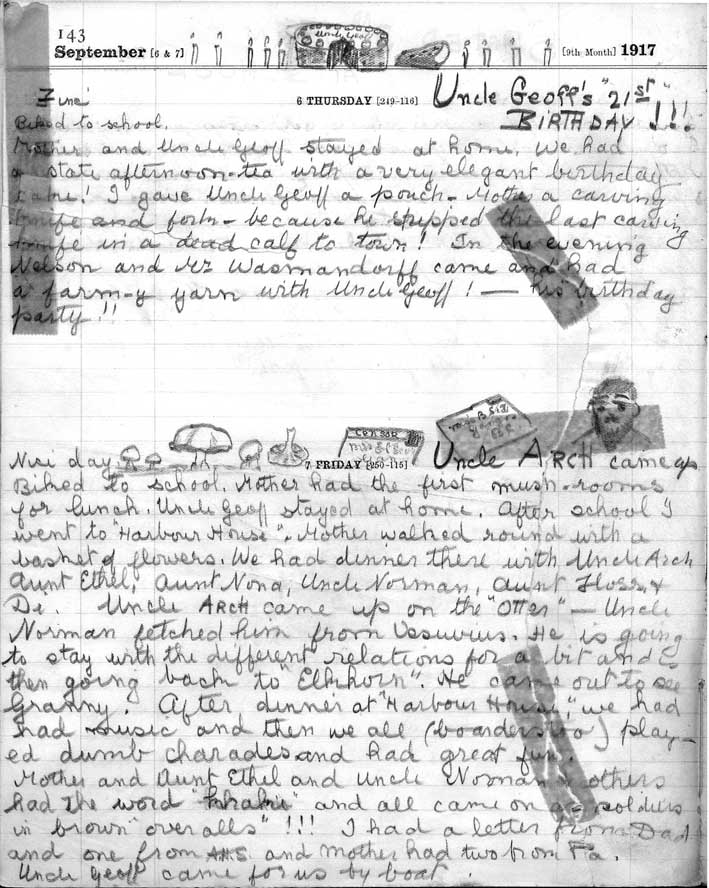 143
September [6 & 7] Uncle Geoff [9th Month] 1917
Fine
6 THURSDAY [249-116] Uncle Geoff's "21st
BIRTHDAY !!!
Biked to school.
Mother and Uncle Geoff stayed at home. We had
a state afternoon-tea with a very elegant birthday
cake! I gave Uncle Geoff a pouch - Mother a carving
knife and fork - because he shipped the last carving
knife in a dead calf to town! In the evening
Nelson and Mr Wasmandorff came and had
a farm-y yarn with Uncle Geoff! — his birthday
party!!
Censor
7 FRIDAY [250-115] Uncle ARCH came up
Nisi day
Biked to school. Mother had the first mush-rooms
for lunch. Uncle Geoff stayed at home. After school I
went to "Harbour House". Mother walked round with a
basket of flowers. We had dinner there with Uncle Arch
Aunt Ethel, Aunt Nona, Uncle Norman, Aunt Floss, &
Di. Uncle ARCH came up on the "Otter" — Uncle
Norman fetched him from Vesuvius. He is going
to stay with the different relations for a bit and is
then going back to "Elkhorn". He came out to see
Granny. After dinner at "Harbour House," we had
had music and then we all (boarders too) play-
ed dumb charades and had great fun.
Mother and Aunt Ethel and Uncle Norman & others
had the word "khaki" and all came on as soldiers
in brown "overalls" !!! I had a letter from Dad
and one from A.H.S. and mother had two from Fa.
Uncle Geoff came for us by boat.